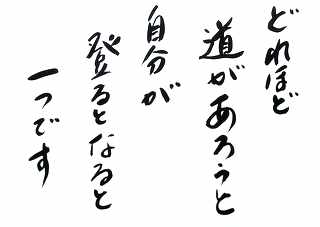 どれほど
道があろうと
自分が
登るとなると
一つです